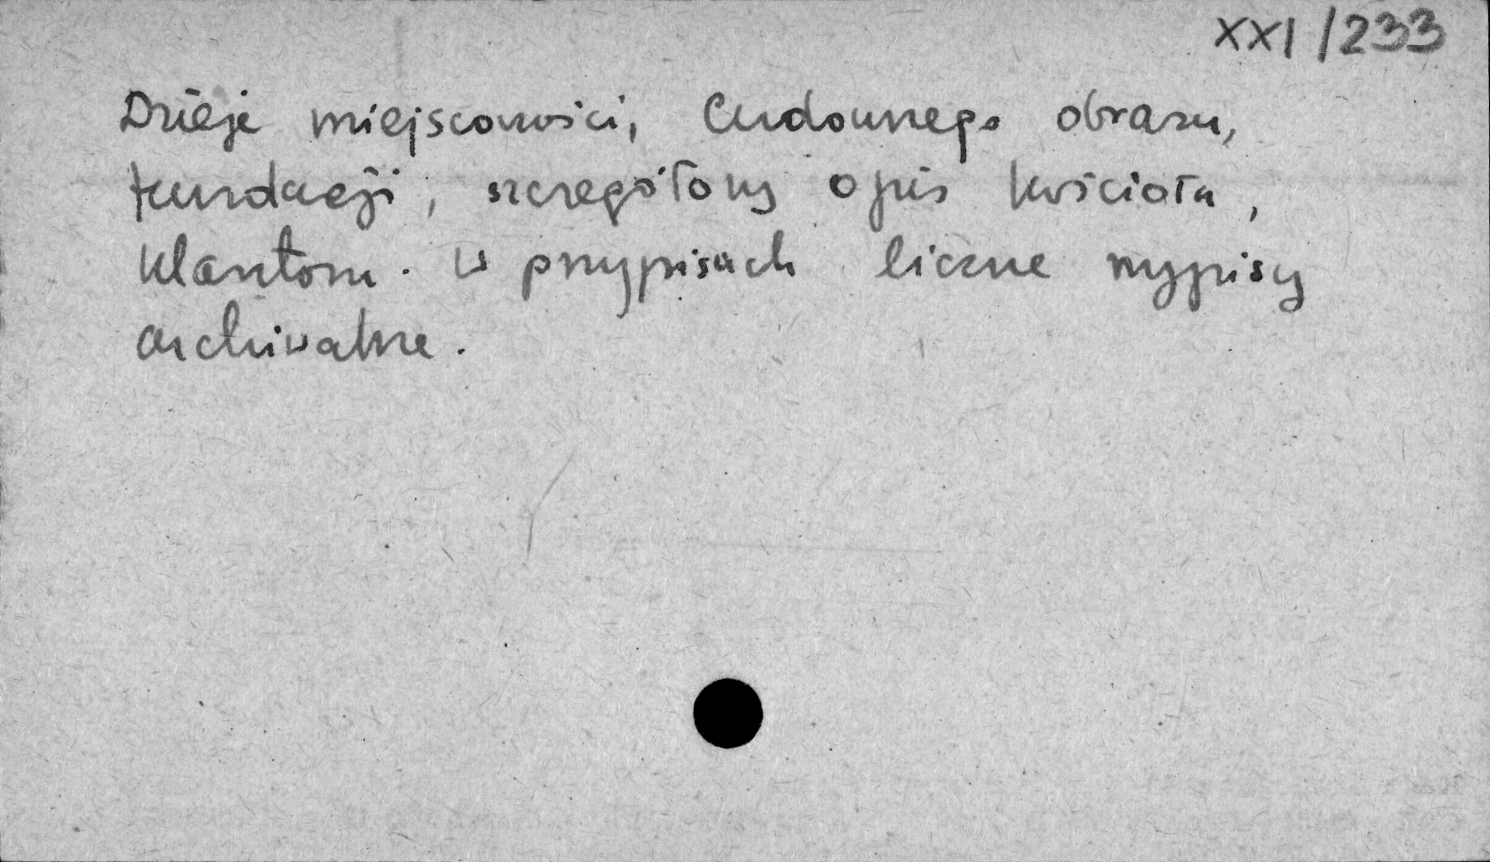 XXI/233
Dzieje miejscowości, Cudownego obrazu,
fundacji, szczegółowy opis kościoła,
klasztoru. W przypisach liczne wypisy
archiwalne.